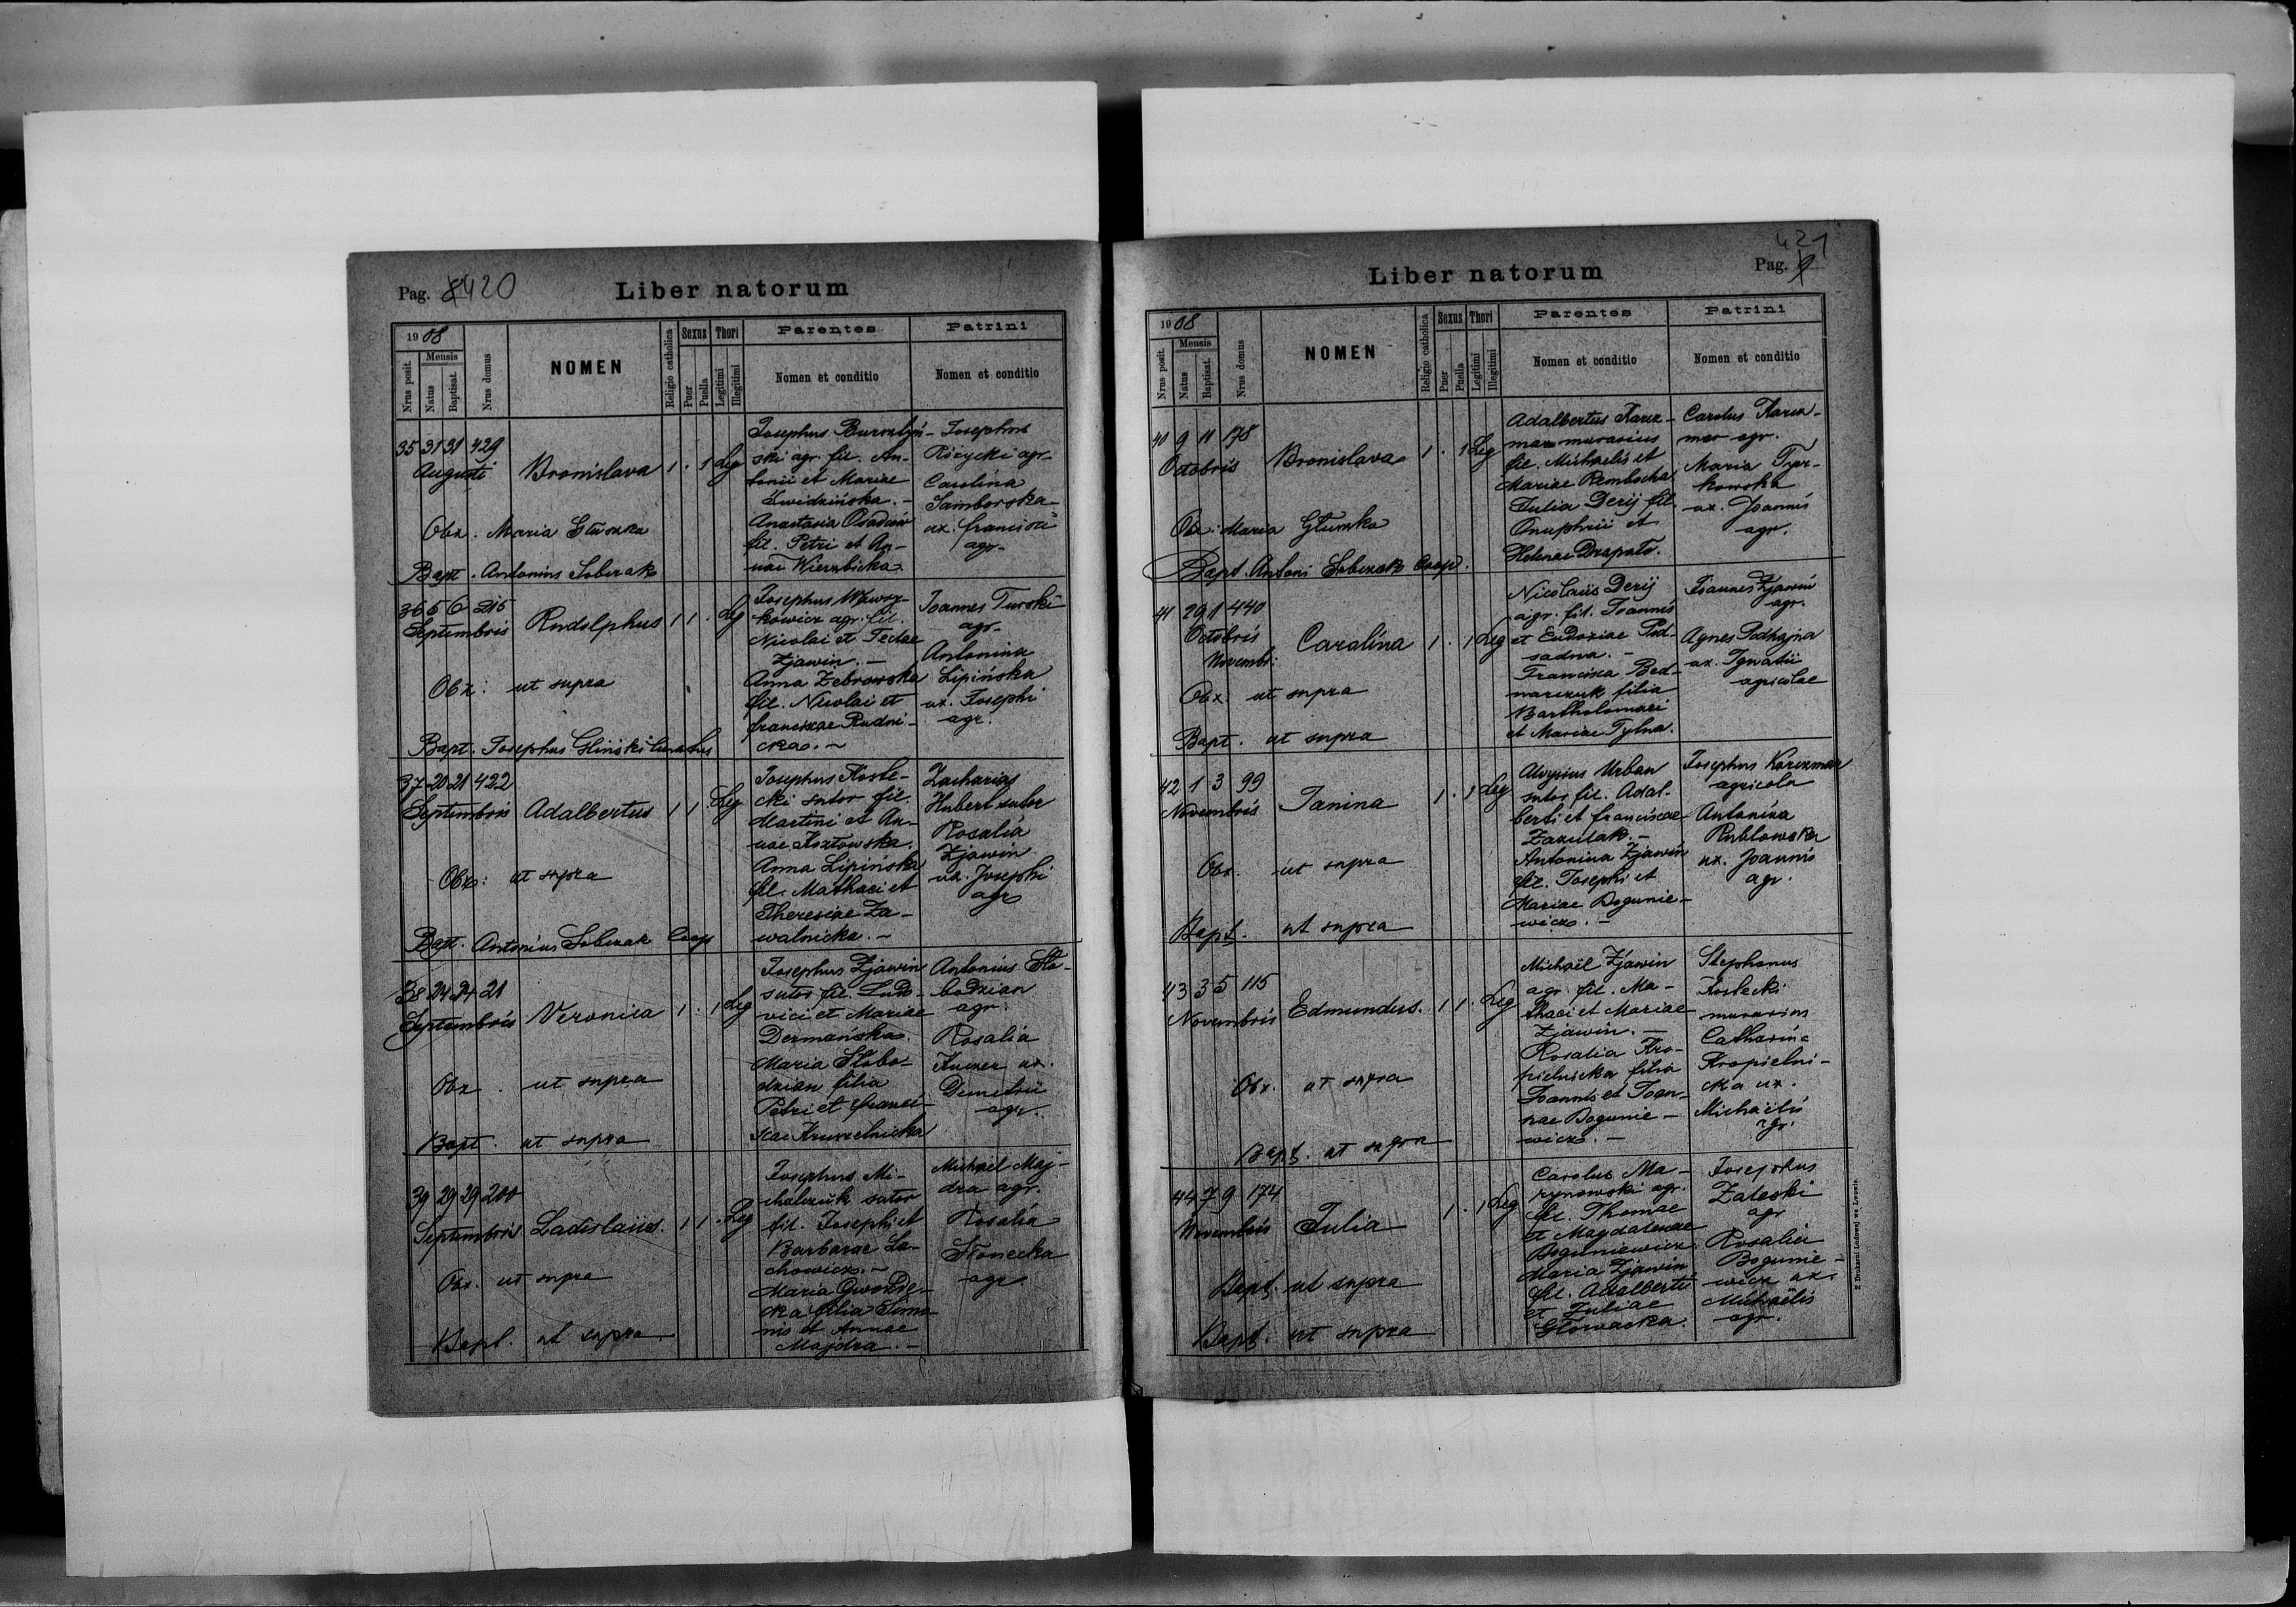 Pag. 8 420
Liber natorum
1908
Nrus posit.
Mensis
Natus
Baptisat.
Nrus domus
NOMEN
Religio catholica
Sexus
Puer
Puella
Thori
Legitimi
Illegitimi
Parentes
Nomen et conditio
Patrini
Nomen et conditio
35 31 31 429
Augusti
Bronislava
1 . 1 Leg
Obx. Maria
Bapt. Antonius Sobczak
Josephus
ski agr. fil. An-
tonii et Mariae
Anastasia
fil. Petri et An-
nae Wierzbicka
Josephus
Różycki agr.
Carolina
Samborska
ux. Francisci
agr.
36 5 6 215
Septembris
Rudolphus
1 1 . Leg
Obx: ut supra
Bapt. Josephus Gliński Curatus
Josephus Wawry-
kowicz agr. fil.
Nicolai et Teclae
Zjawin. -
Anna Zebrowska
fil. Nicolai et
Franciscae Rudni-
cka. -
Joannes Turski
agr.
Antonina
Lipińska
ux. Josephi
agr.
37 20 21 422
Septembris
Adalbertus
1 1 Leg
Obx: ut supra
Bapt. Antonius Sobczak Coop
Josephus Koste-
cki sutor fil.
Martini et An-
nae
Anna Lipińska
fil. Mathaei et
Theresiae Za-
walnicka. -
Zacharias
Hubert sutor
Rosalia
Zjawin
ux. Josephi
agr
38 24 24 21
Septembris
Veronica
1 . 1 Leg
Obx. ut supra
Bapt. ut supra
Josephus Zjawin
sutor fil. Ludo-
vici et Mariae
Dermańska.
Maria Słobo-
dzian filia
Petri et Franci-
scae Kruszelnicka
Antonius Sło-
bodzian
agr.
Rosalia
Kuczer ux.
Demetrii
agr.
39 29 29 200
Septembris
Ladislaus.
1 1 . Leg
Obx. ut supra
Bapt. ut supra
Josephus Mi-
chalczuk sutor
fil. Josephi et
Barbarae La-
chowicz. -
Maria Gwoźde-
cka filia Simo-
nis et Annae
Majdra. -
Michael Maj-
dra agr.
Rosalia
Słonecka
agr
421
Pag. 9
Liber natorum
1908
Nrus posit.
Mensis
Natus
Baptisat.
Nrus domus
NOMEN
Religio catholica
Sexus
Puer
Puella
Thori
Legitimi
Illegitimi
Parentes
Nomen et conditio
Patrini
Nomen et conditio
40 9 11 178
Octobris
Bronislava
1 . 1 Leg
Obx: Maria
Bapt. Antoni Sobczak Coop.
Adalbertus Karcz-
mar murarius
fil. Michaelis et
Mariae Rembocha
Julia Derij fil.
Onuphrii et
Helenae Drapato.
Carolus Karcz-
mar agr.
Maria Tur-
kowska
ux. Joannis
agr.
41 29 1 440
Octobris
Novembr:
Carolina
1 . 1 Leg
Obx. ut supra
Bapt. ut supra
Nicolaus Derij
agr. fil. Joannis
et Eudoxiae Pod-
sadna. -
Francisca Bed-
narczuk filia
Bartholomaei
et Mariae Tylna.
Joannes Zjawin
agr.
Agnes Podhajna
ux. Ignatii
agricolae
42 1 3 99
Novembris
Janina
1 . 1 Leg
Obx. ut supra
Bapt. ut supra
Aloysius Urban
sutor fil. Adal-
berti et Franciscae
Zazulak. -
Antonina Zjawin
fil. Josephi et
Mariae Bogunie-
wicz. -
Josephus Karczmar
agricola
Antonina
Rublowska
ux. Joannis
agr.
43 3 5 115
Novembris
Edmundus.
1 1 . Leg
Obx. ut supra
Bapt. ut supra
Michaël Zjawin
agr. fil. Ma-
thaei et Mariae
Zjawin. -
Rosalia Kro-
pielnicka filia
Joannis et Joan-
nae Bogunie-
wicz. -
Stephanus
Kostecki
murarius
Catharina
Kropielni-
cka ux.
Michaëlis
agr.
44 7 9 174
Novembris
Julia
1 . 1 Leg
Bapt. ut supra
Bapt. ut supra
Carolus Ma-
rynowski agr.
fil. Thomae
et Magdalenae
Boguniewicz
Maria Zjawin
fil. Adalberti
et Juliae
Głowacka.
Josephus
Zaleski
agr
Rosalia
Bogunie-
wicz ux.
Michaëlis
agr.
Z Drukarni Ludowej we Lwowie.